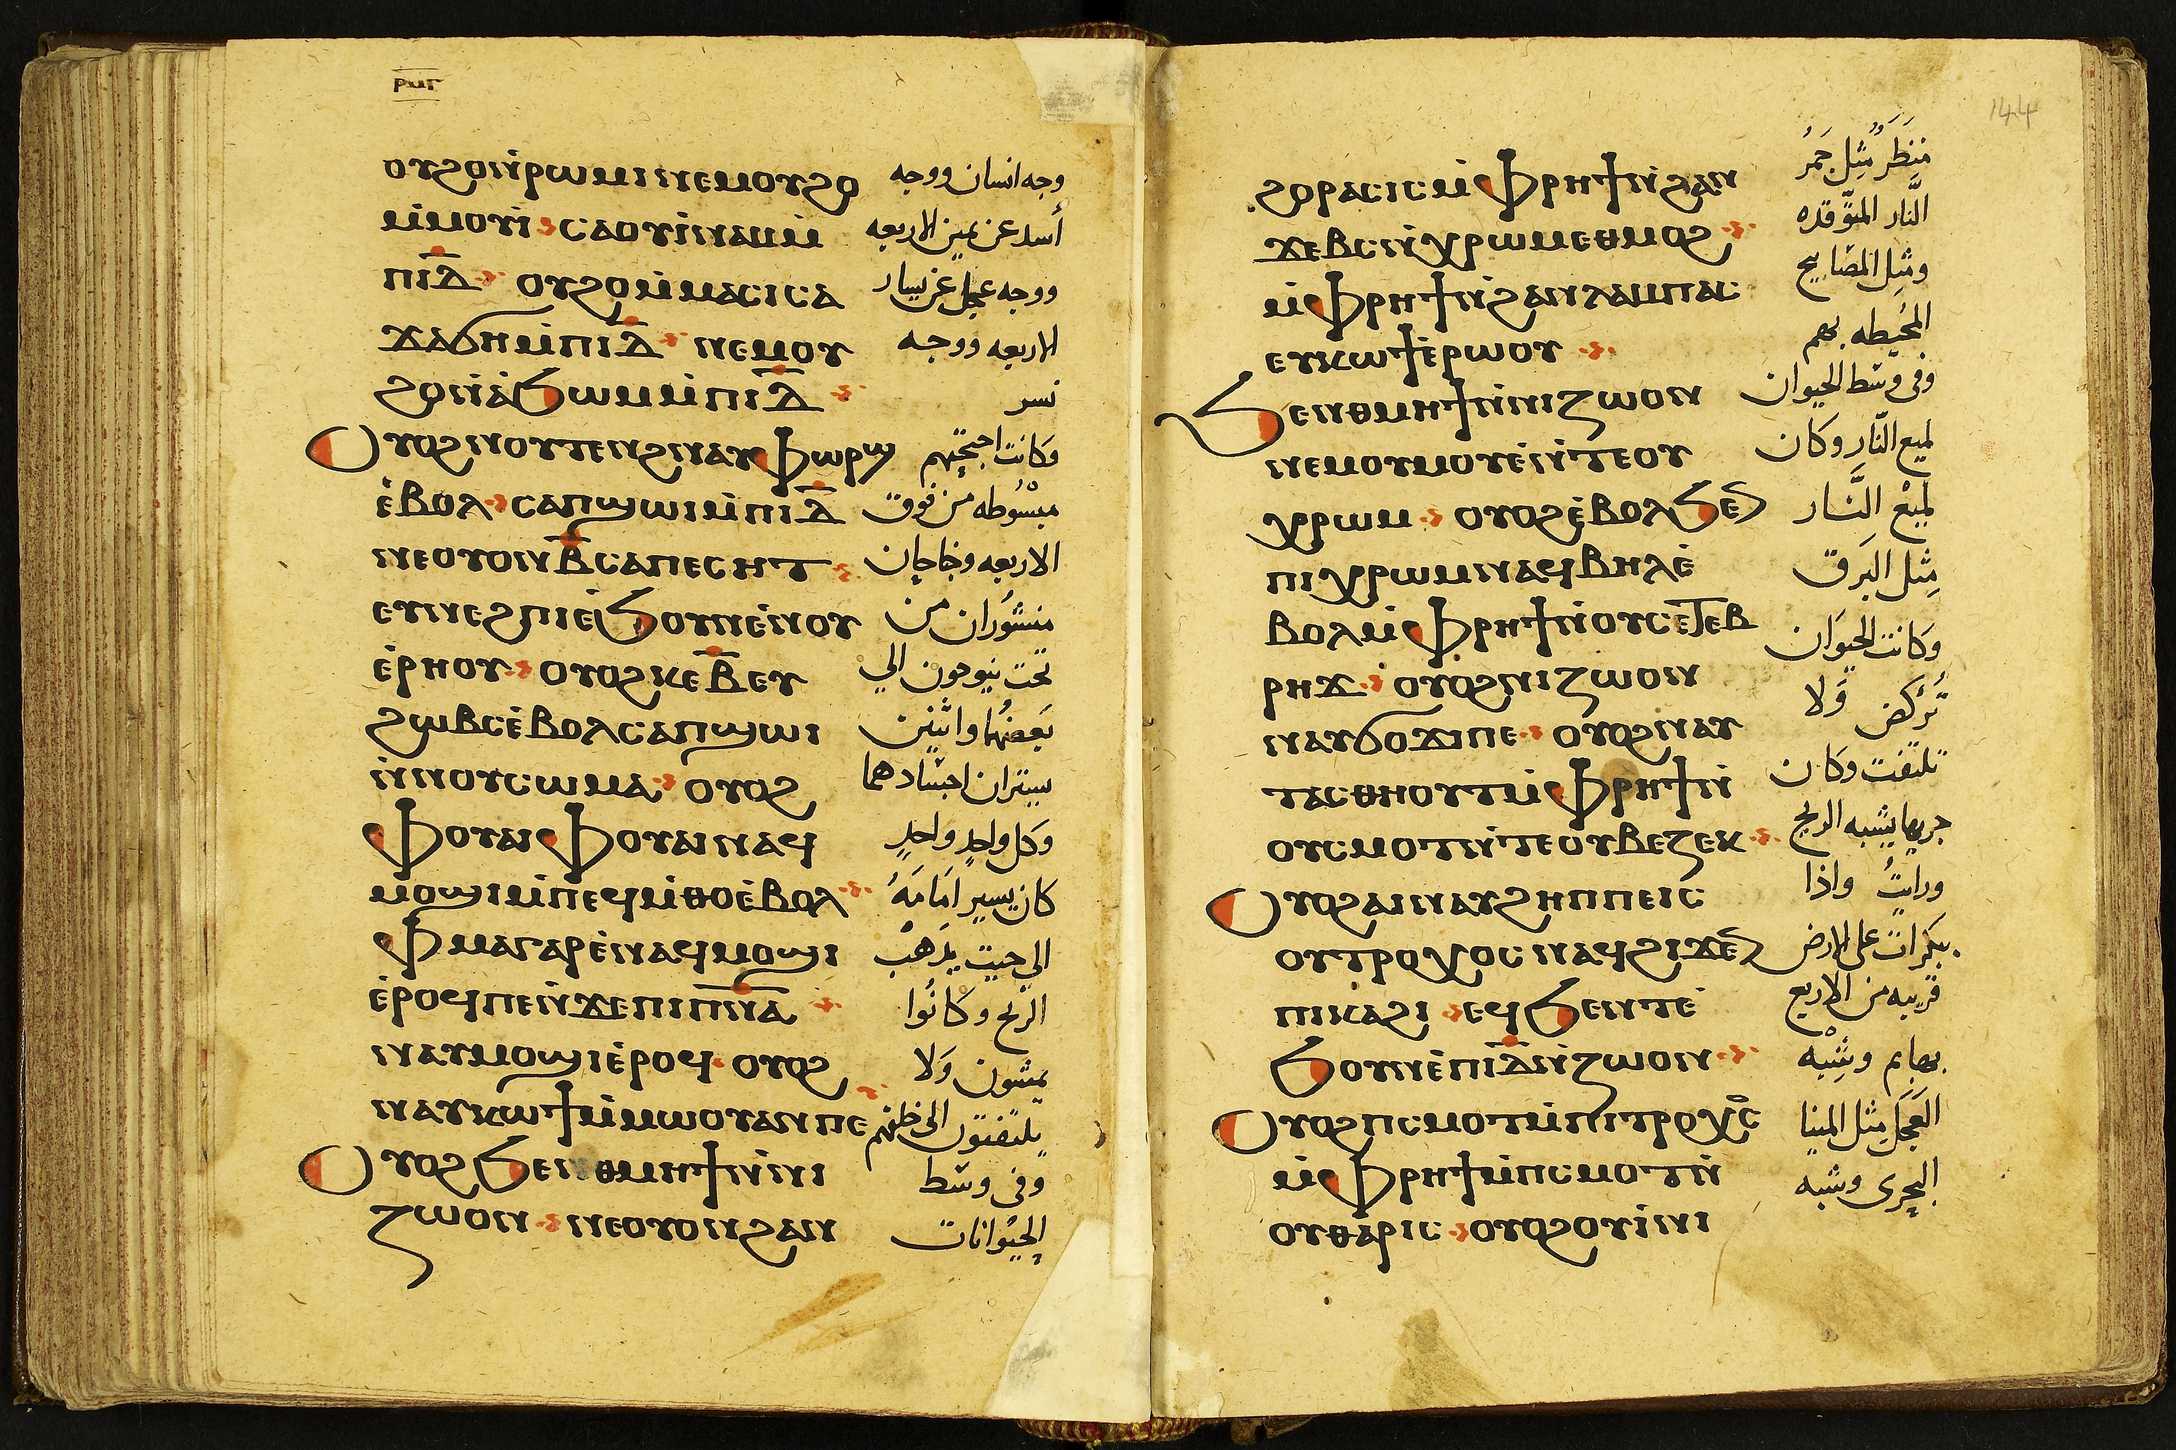 ⲣⲙⲅ
ⲟⲩϩⲟⲛ̀ⲣⲱⲙⲓⲛⲉⲙⲟⲩϩⲟ
ⲙ̀ⲙⲟⲩⲓ̀ ⲥⲁⲟⲩⲓ̀ⲛⲁⲙⲙ̀
ⲡⲓⲇ̅ ⲟⲩϩⲟⲙ̀ⲙⲁⲥⲓⲥⲁ
ϫⲁϭⲏⲙ̀ⲡⲓⲇ̅ ⲛⲉⲙⲟⲩ
ϩⲟⲛ̀ⲁ̀ϧⲱⲙⲙ̀ⲡⲓⲇ̅
Ⲟⲩⲟϩⲛⲟⲩⲧⲉⲛϩⲛⲁⲩⲫⲱⲣϣ
ⲉ̀ⲃⲟⲗ ⲥⲁⲡϣⲱⲓⲙ̀ⲡⲓⲇ̅
ⲛⲉⲟⲩⲟⲛⲃ̅ⲥⲁⲡⲉⲥⲏⲧ
ⲉⲩⲛⲉϩⲡⲓⲉ̀ϧⲟⲩⲛⲉ̀ⲛⲟⲩ
ⲉ̀ⲣⲏⲟⲩ ⲟⲩⲟϩⲕⲉⲃ̅ⲉⲩ
ϩⲱⲃⲥⲉ̀ⲃⲟⲗⲥⲁⲡϣⲱⲓ
ⲛ̀ⲛⲟⲩⲥⲱⲙⲁ ⲟⲩⲟϩ
ⲫⲟⲩⲁⲓⲫⲟⲩⲁⲓⲛⲁϥ
ⲙⲟϣⲓⲙ̀ⲡⲉϥⲙ̀ⲑⲟⲉ̀ⲃⲟⲗ
ⲫⲙⲁⲅⲁⲣⲉ̀ⲛⲁϥⲙⲟϣⲓ
ⲉ̀ⲣⲟϥⲡⲉⲛ̀ϫⲉⲡⲓⲡ̅ⲛ̅ⲁ̅
ⲛⲁⲩⲙⲟϣⲓⲉ̀ⲣⲟϥ ⲟⲩⲟϩ
ⲛⲁⲩⲕⲱϯⲙ̀ⲙⲱⲟⲩⲁⲛⲡⲉ
Ⲟⲩⲟϩϧⲉⲛⲑⲙⲏϯⲛ̀ⲛⲓ
ⲍⲱⲟⲛ ⲛⲉⲟⲩⲟⲛϩⲁⲛ
وجه انسان ووجه
أسد عن يمين الاربعه
ووجه عجل عن يسار
الاربعه ووجه
نسر
وكانت اجنحتهم
مبسوطه من فوق
الاربعه وجناحان
منشوران من
تحت
بعضهما واثنين
يستران اجسادهما
وكل واحدٍ واحدٍ
كان يسير امامهُ
الي حيث يذهب
الريح وكانوا
يمشون ولا
يلتفتون الى خلفهم
وفى وسط
الحيوانات
144
ϩⲟⲣⲁⲥⲓⲥⲙ̀ⲫⲣⲏϯⲛ̀ϩⲁⲛ
ϫⲉⲃⲥⲛ̀ⲭⲣⲱⲙⲉⲑⲙⲟϩ
ⲙ̀ⲫⲣⲏϯⲛ̀ϩⲁⲛⲗⲁⲙⲡⲁⲥ
ⲉⲩⲕⲱϯⲉ̀ⲣⲱⲟⲩ
ϧⲉⲛⲑⲙⲏϯⲛ̀ⲛⲓⲍⲱⲟⲛ
ⲛⲉⲙⲟⲩⲙⲟⲩⲉ̀ⲛ̀ⲧⲉⲟⲩ
ⲭⲣⲱⲙ ⲟⲩⲟϩⲉ̀ⲃⲟⲗϧⲉⲛ
ⲡⲓⲭⲣⲱⲙⲛⲁϥⲃⲏⲗⲉ̀
ⲃⲟⲗⲙ̀ⲫⲣⲏϯⲛ̀ⲟⲩⲥⲉⲧⲉⲃ
ⲣⲏϫ ⲟⲩⲟϩⲛⲓⲍⲱⲟⲛ
ⲛⲁⲩϭⲟϫⲓⲡⲉ ⲟⲩⲟϩⲛⲁⲩ
ⲧⲁⲥⲑⲏⲟⲩⲧⲙ̀ⲫⲣⲏϯⲛ̀
ⲟⲩⲥⲙⲟⲧⲛ̀ⲧⲉⲟⲩⲃⲉⲍⲉⲕ
Ⲟⲩⲟϩⲁⲓⲛⲁⲩϩⲏⲡⲡⲉⲓⲥ
ⲟⲩⲧⲣⲟⲭⲟⲥⲛⲁϥϩⲓϫⲉⲛ
ⲡⲓⲕⲁϩⲓ ⲉϥϧⲉⲛⲧⲉ̀
ϧⲟⲩⲛⲉ̀ⲡⲓⲇ̅ⲛ̀ⲍⲱⲟⲛ
Ⲟⲩⲟϩⲡⲥⲙⲟⲧⲙ̀ⲡⲓⲧⲣⲟⲭⲟⲥ
ⲙ̀ⲫⲣⲏϯⲙ̀ⲡⲥⲙⲟⲧⲛ̀
ⲟⲩⲑⲁⲣⲓⲥ ⲟⲩⲟϩⲟⲩⲓ̀ⲛⲓ
منظر مثل جمر
النّار المتوّقده
ومثل المصابيح
المحيطه بهم
وفى وسط الحيوان
لميع النّار وكان
لميع النَّار
مثل البرق
وكانت الحيوان
تركض ولا
تلتفت وكان
جريها يشبه
ورايتُ واذا
بكرات على الارض
قريبه من الاربع
بهايم وشبه
العجل مثل المينا
البحرى وشبه